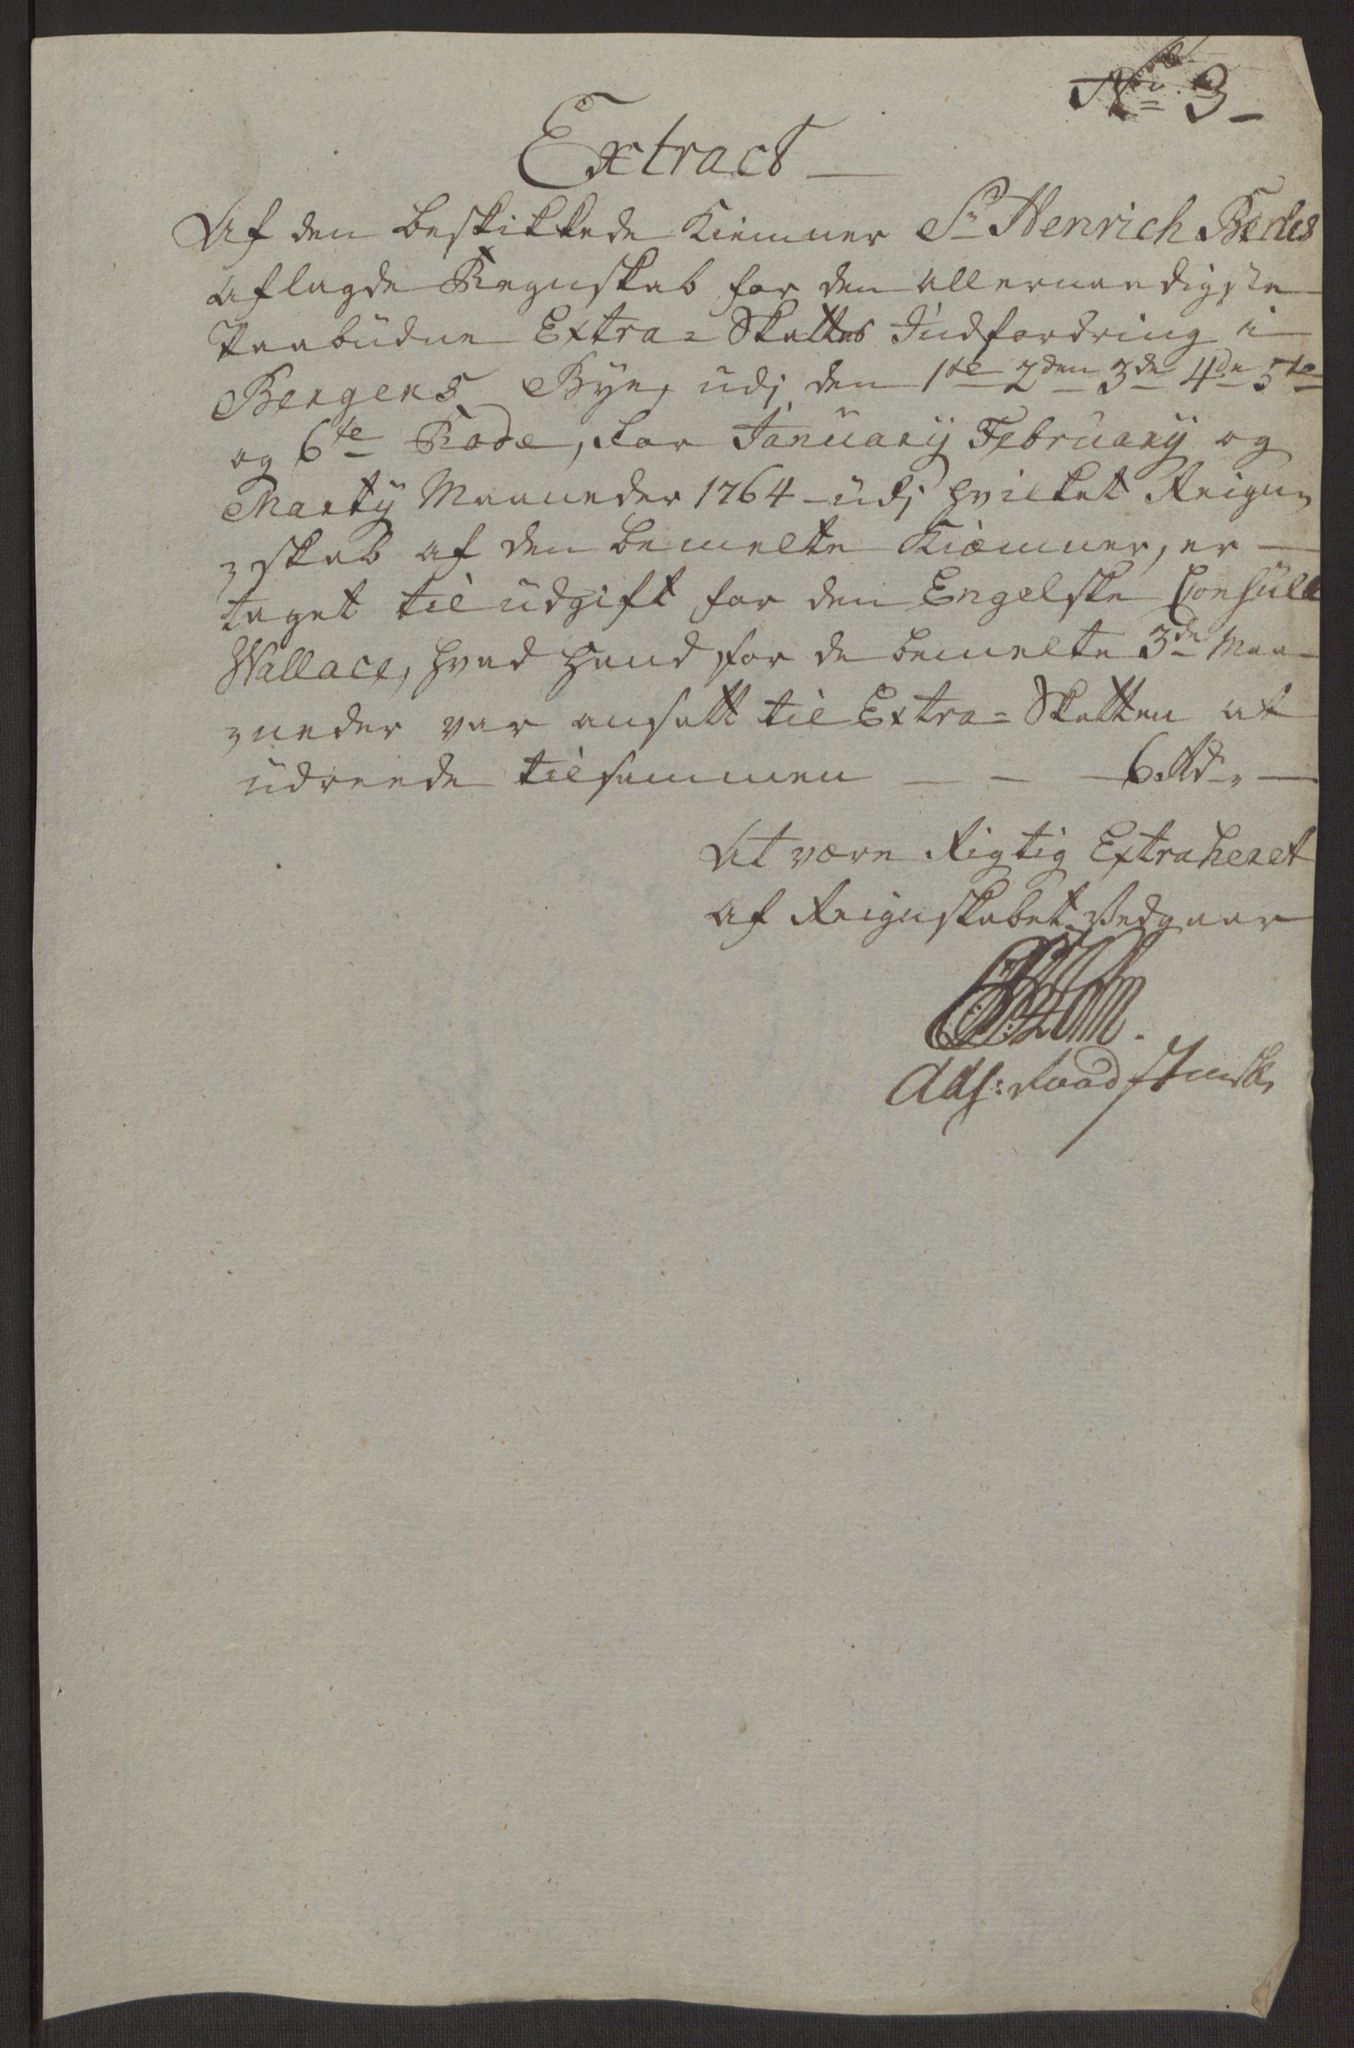 No. 3
Extract
Af den beskikkede Kiemner Sr Henrich
aflagde Regnskab for den allernaadigste
Paabudne Extra=Skattes Indfordring i
Bergens Bye, udj den 1te 2den 3de 4de 5te
og 6te Rode, for January February og
Marty Maaneder 1764 - udj hvilket Reign=
=skab af den bemelte Kiæmner, er
taget til udgift for den Engelske Consull
Wallace, hvad hand for de bemelte 3de Maa=
=neder var ansatt til Extra=Skatten at
udreede tilsammen - - 6 Rdr
At være Rigtig Extraheret
af Reignskabet Vedgaar